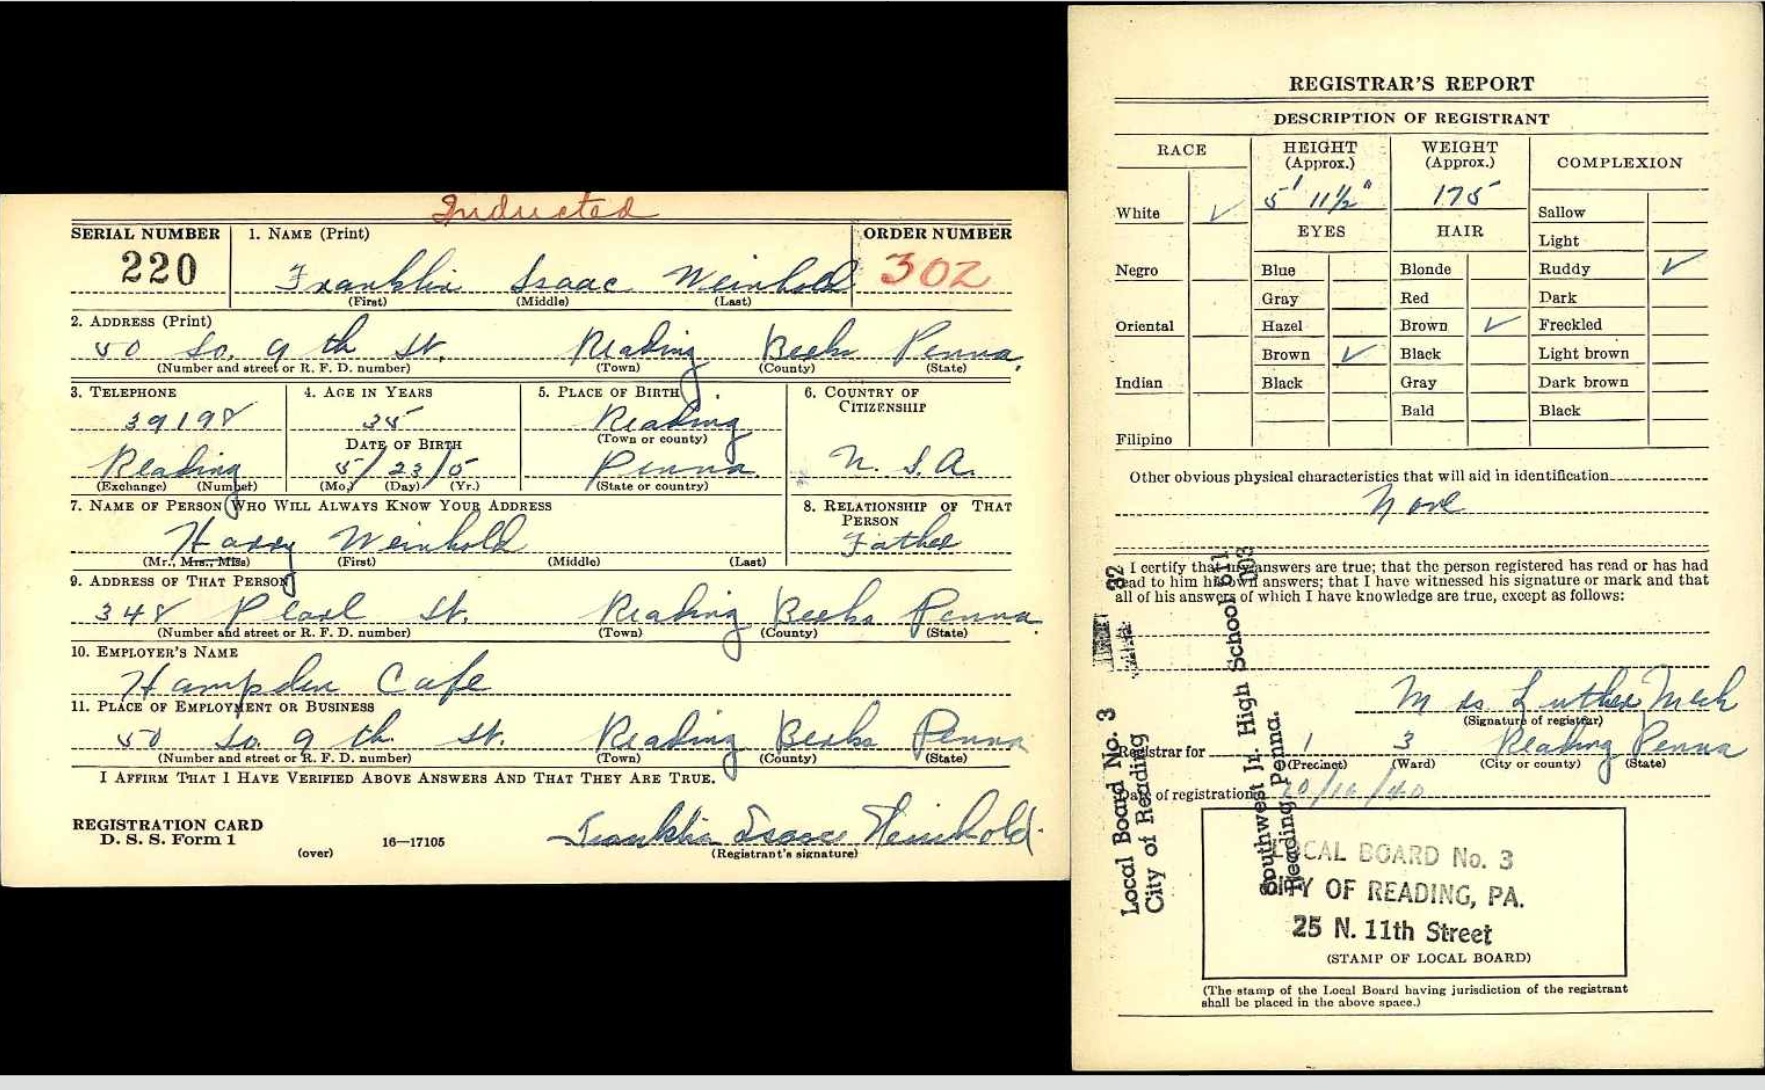 Inducted
SERIAL NUMBER 1. NAME (Print) ORDER NUMBER
220 Franklin Isaac Weinhold 302
(First) (Middle) (Last)
2. ADDRESS (Print)
50 So. 9th St. Reading Berks Penna.
(Number and street or R. F. D. number) (Town) (County) (State)
3. TELEPHONE 4. AGE IN YEARS 5. PLACE OF BIRTH 6. COUNTRY OF CITIZENSHIP
39198 35 Reading
DATE OF BIRTH (Town or county)
Reading 5/23/5 Penna. U. S. A.
(Exchange) (Number) (Mo.) (Day) (Yr.) (State or country)
7. NAME OF PERSON WHO WILL ALWAYS KNOW YOUR ADDRESS 8. RELATIONSHIP OF THAT PERSON
Harry Weinhold Father
(Mr., Mrs., Miss) (First) (Middle) (Last)
9. ADDRESS OF THAT PERSON
348 Pearl St. Reading Berks Penna.
(Number and street or R. F. D. number) (Town) (County) (State)
10. EMPLOYER'S NAME
Hampden Cafe
11. PLACE OF EMPLOYMENT OR BUSINESS
50 So. 9th. St. Reading Berks Penna
(Number and street or R. F. D. number) (Town) (County) (State)
I AFFIRM THAT I HAVE VERIFIED ABOVE ANSWERS AND THAT THEY ARE TRUE.
REGISTRATION CARD
D. S. S. Form 1 16—17105 Franklin Isaac Weinhold.
(over) (Registrant's signature)
REGISTRAR'S REPORT
DESCRIPTION OF REGISTRANT
RACE HEIGHT (Approx.) WEIGHT (Approx.) COMPLEXION
5' 11½" 175
White ✓ Sallow
EYES HAIR Light
Negro Blue Blonde Ruddy ✓
Gray Red Dark
Oriental Hazel Brown ✓ Freckled
Brown ✓ Black Light brown
Indian Black Gray Dark brown
Bald Black
Filipino
Other obvious physical characteristics that will aid in identification
None
I certify that my answers are true; that the person registered has read or has had
read to him his own answers; that I have witnessed his signature or mark and that
all of his answers of which I have knowledge are true, except as follows:
Mrs. Luther Mech
(Signature of registrar)
Registrar for 1 3 Reading Penna
(Precinct) (Ward) (City or county) (State)
Date of registration /16/40
Local Board No. 3
City of Reading
Southwest Jr. High School
Reading, Penna.
LOCAL BOARD No. 3
CITY OF READING, PA.
25 N. 11th Street
(STAMP OF LOCAL BOARD)
(The stamp of the Local Board having jurisdiction of the registrant
shall be placed in the above space.)